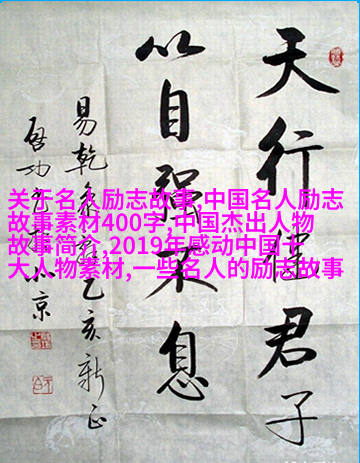 关于名人励志故事,中国名人励志
故事素材400字,中国杰出人物
故事简介,2019年感动中国十
大人物素材,一些名人的励志故事
天行健君子
以自强不息
易乾乙亥新正
啟功